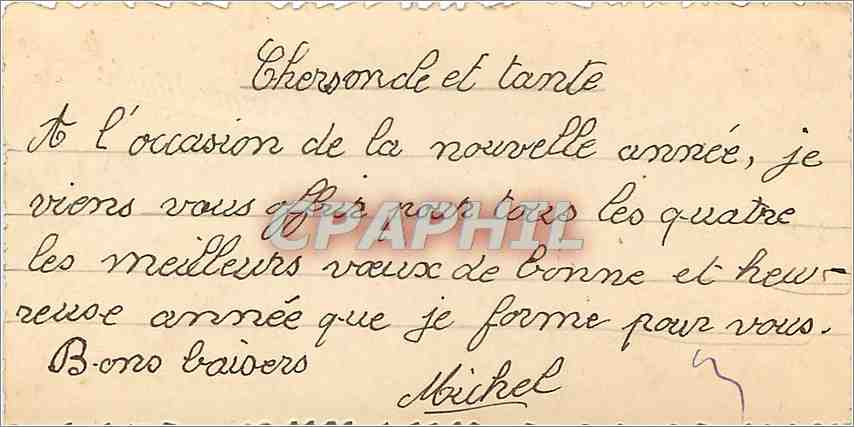 Chers oncle et tante
A l'occasion de la nouvelle année, je
viens vous offrir pour tous les quatre
les meilleurs vœux de bonne et heu-
reuse année que je forme pour vous.
Bons baisers
Michel
CPAPHIL